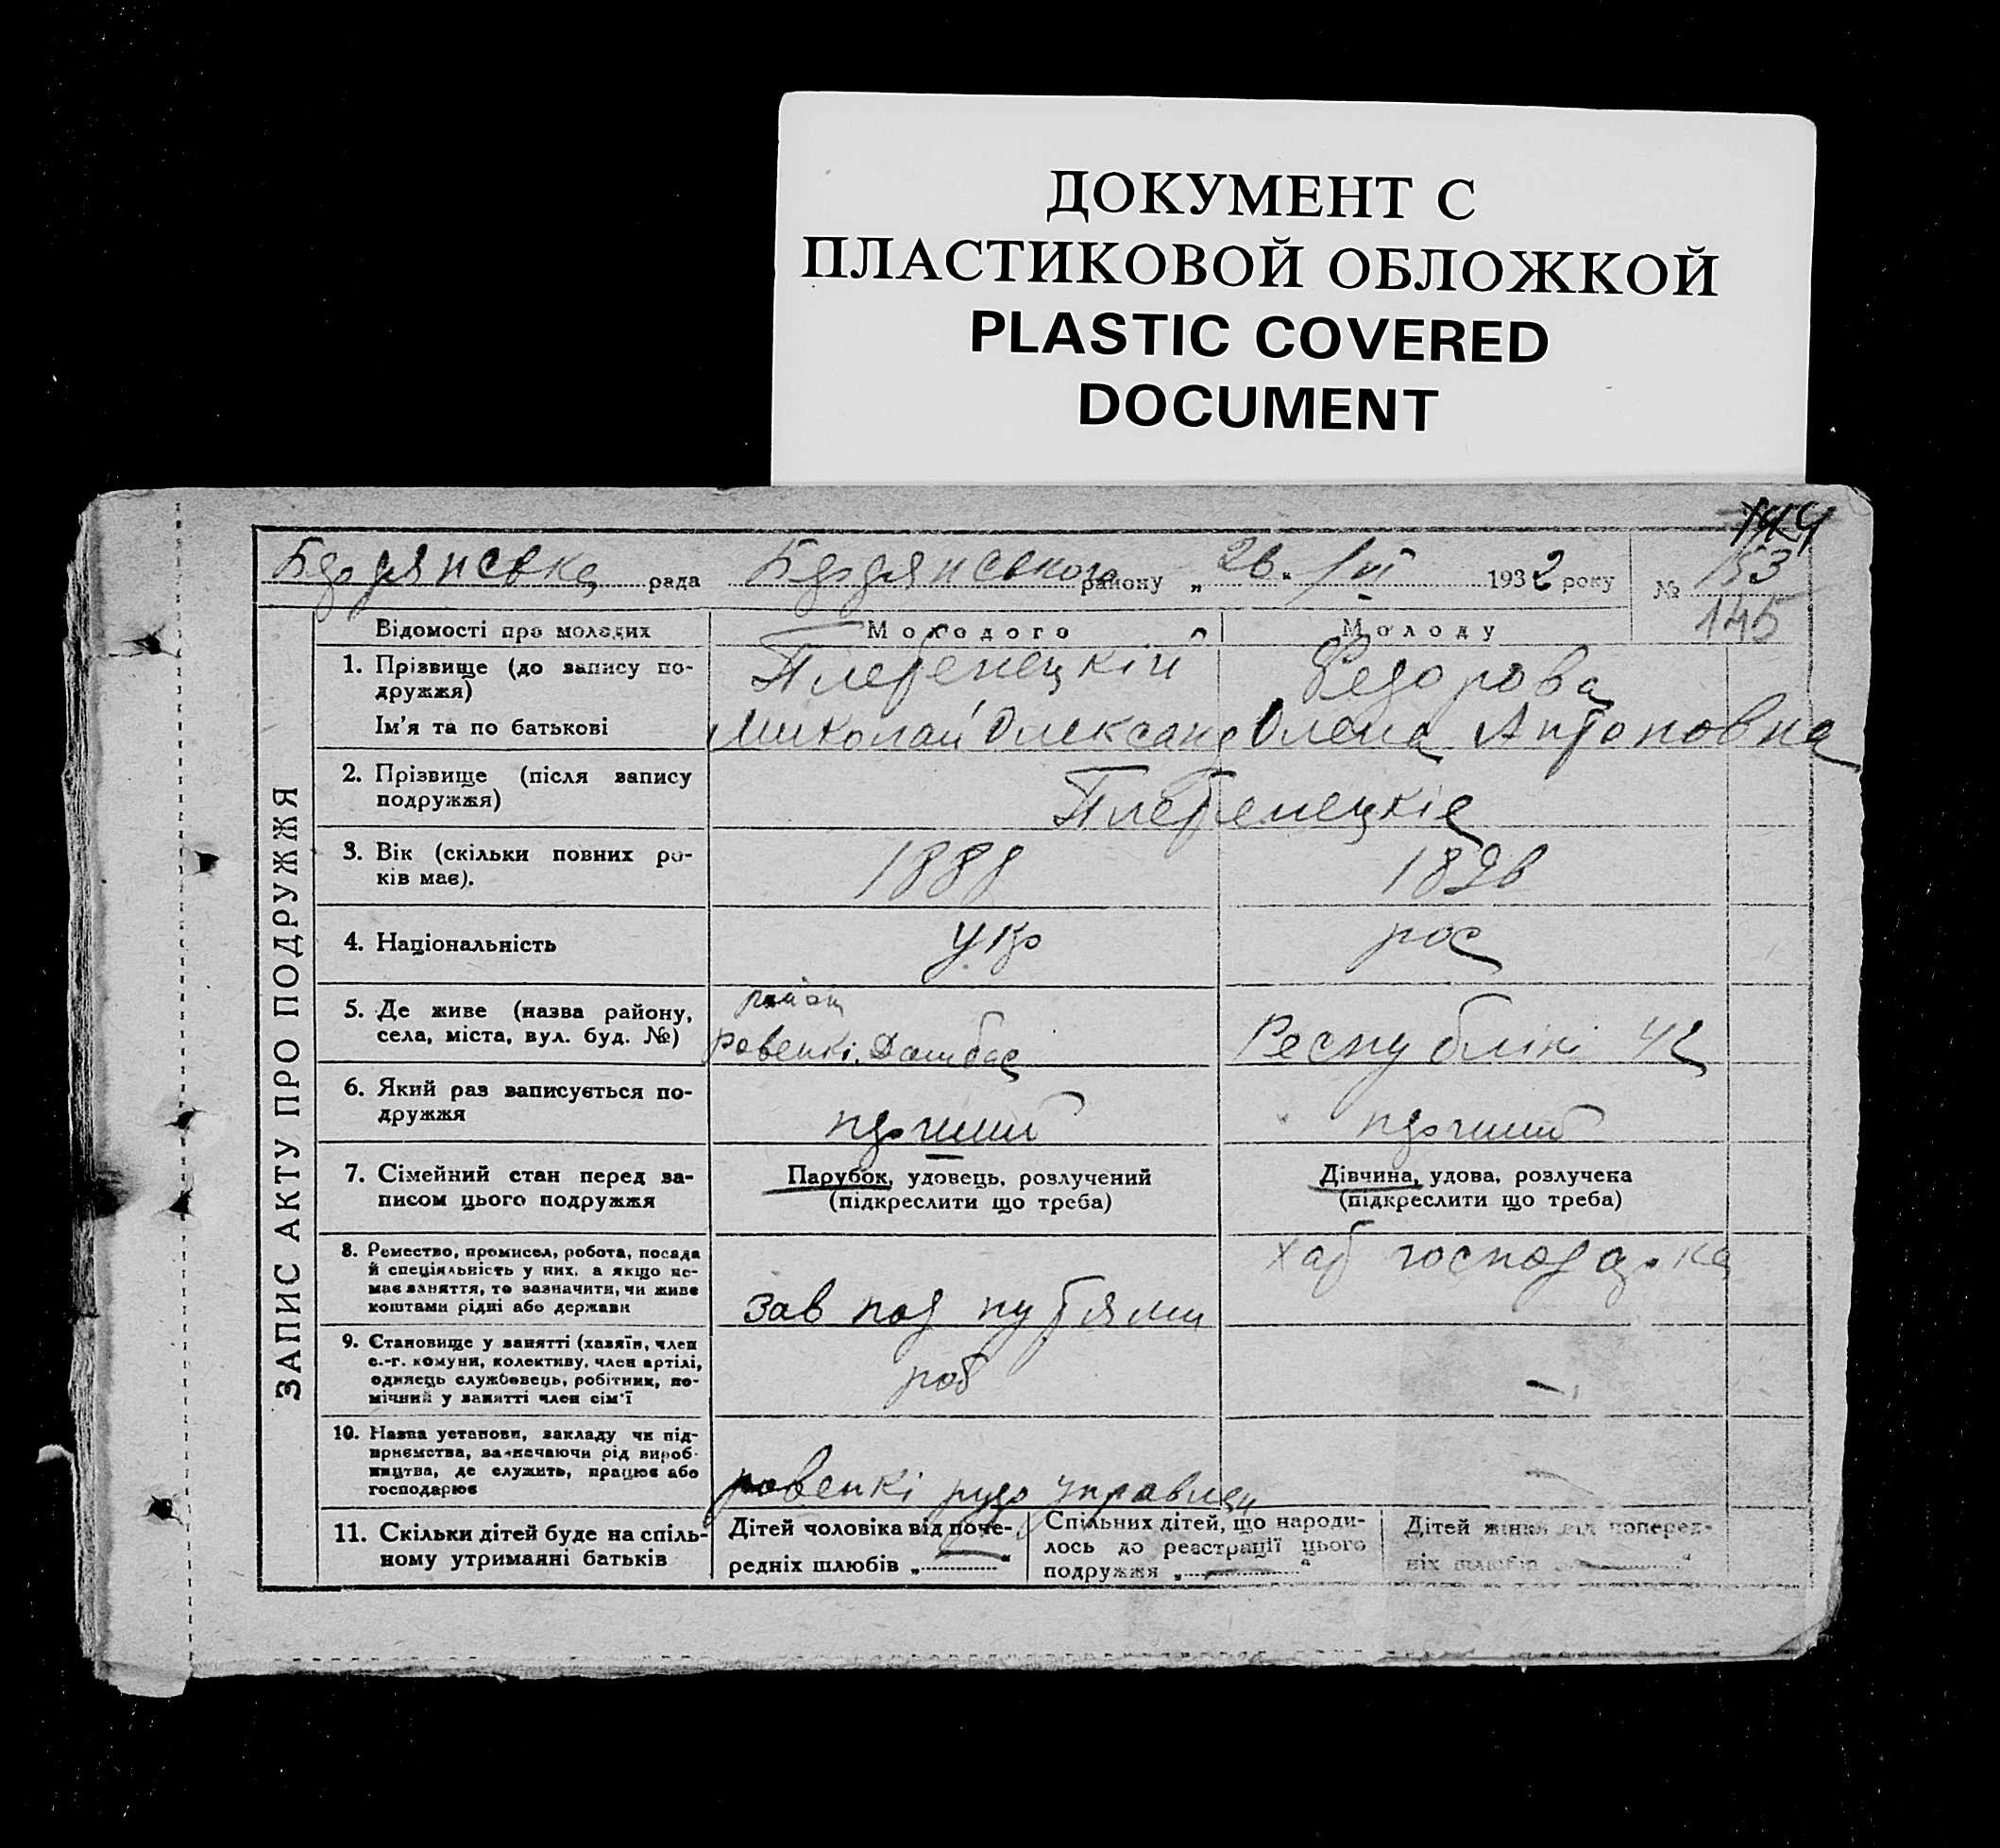 ДОКУМЕНТ С
ПЛАСТИКОВОЙ ОБЛОЖКОЙ
PLASTIC COVERED
DOCUMENT
Бердянська рада Бердянського району „26“ VI 1932 року № 153
145
ЗАПИС АКТУ ПРО ПОДРУЖЖЯ
Відомості про молодих Молодого Молоду
1. Прізвище (до запису по-
дружжя)
Плебенецкій Федорова
Ім'я та по батькові Миколай Олександ Олена Антоновна
2. Прізвище (після запису
подружжя)
Плебенецкіе
3. Вік (скільки повних ро-
ків має).
1888 1896
4. Національність укр рос
5. Де живе (назва району,
села, міста, вул. буд. №)
район
Ровенкі. Донбас Республікі 42
6. Який раз записується по-
дружжя
перший перший
7. Сімейний стан перед за-
писом цього подружжя
Парубок, удовець, розлучений
(підкреслити що треба)
Дівчина, удова, розлучена
(підкреслити що треба)
8. Ремество, промисел, робота, посада
й спеціяльність у них, а якщо не-
має заняття, то зазначити, чи живе
коштами рідні або держави
зав под путями
хат господарка
9. Становище у занятті (хазяїн, член
с.-г. комуни, колективу, член артілі,
одинець службовець, робітник, по-
мічний у занятті член сім'ї
роб —
10. Назва установи, закладу чи під-
приємства, зазначаючи рід вироб-
ництва, де служить, працює або
господарює
ровенкі рудо управлен
11. Скільки дітей буде на спіль-
ному утриманні батьків
Дітей чоловіка від попе-
редніх шлюбів „—“
Спільних дітей, що народи-
лось до реєстрації цього
подружжя „—“
Дітей жінки від поперед-
ніх шлюбів „—“